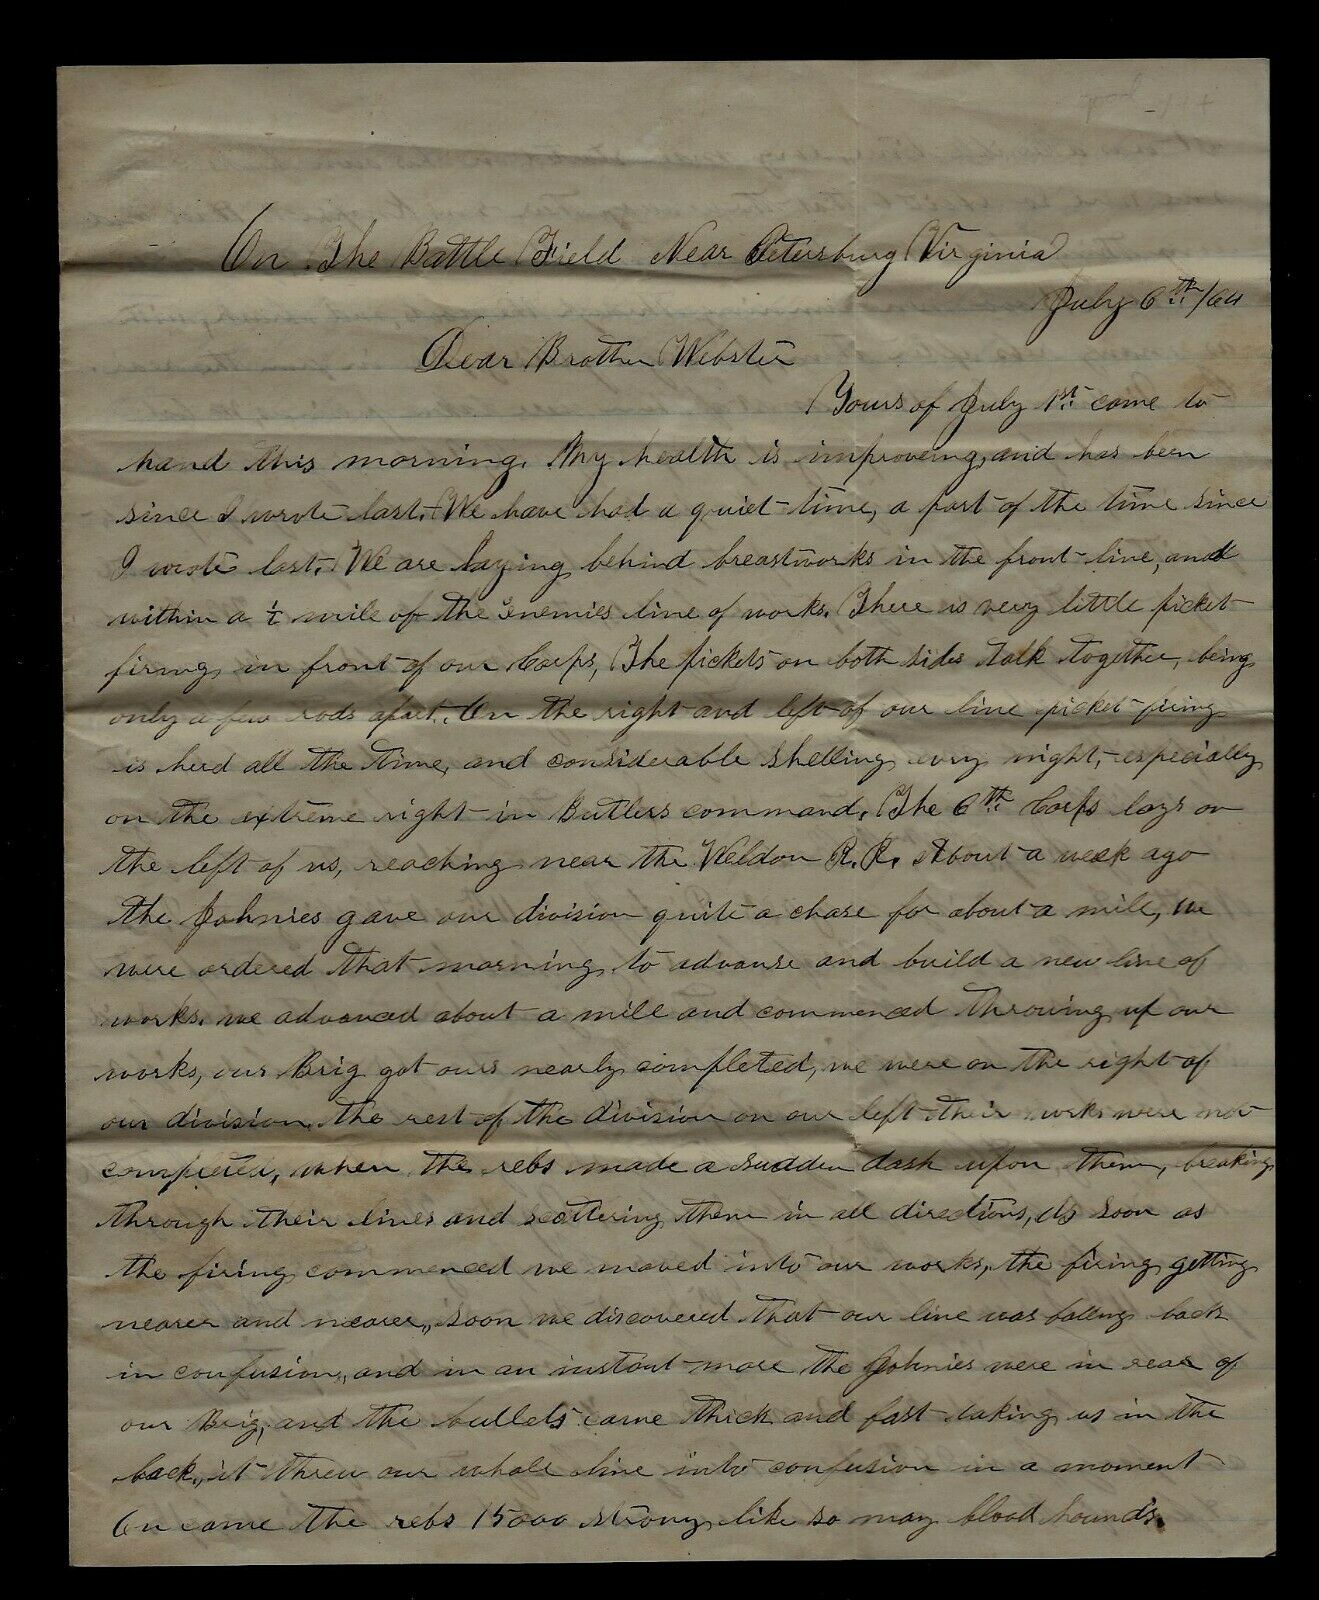 On The Battle Field Near Petersburg Virginia
July 6th /64
Dear Brother Webster
Yours of July 1st came to
hand this morning. My health is improveing, and has been
since I wrote last. We have had a quiet time, a part of the time since
I wrote last. We are laying behind breastworks in the front line, and
within a ½ mile of the enemies line of works. There is very little picket
firing in front of our Corps, The pickets on both sides talk together, being
only a few rods apart. On the right and left of our line picket firing
is herd all the time, and considerable shelling evry night, especially
on the extreme right in Butlers command. The 6th Corps lays on
the left of us, reaching near the Weldon R.R. About a week ago
the Johnies gave our division quite a chase for about a mile, we
were ordered that morning to advanse and build a new line of
works. we advanced about a mile and commenced throwing up our
works, our Brig got ours nearly completed, we were on the right of
our division, the rest of the division on our left their works were not
completed, when the rebs made a sudden dash upon them, breaking
through their lines and scattering them in all directions, As soon as
the firing commenced we moved into our works, the firing getting
nearer and nearer, soon we discovered that our line was falling back
in confusion, and in an instant more the Johnies were in rear of
our Brig, and the bullets came thick and fast taking us in the
back, it threw our whole line into confusion in a moment
On came the rebs 15000 strong like so many blood hounds.